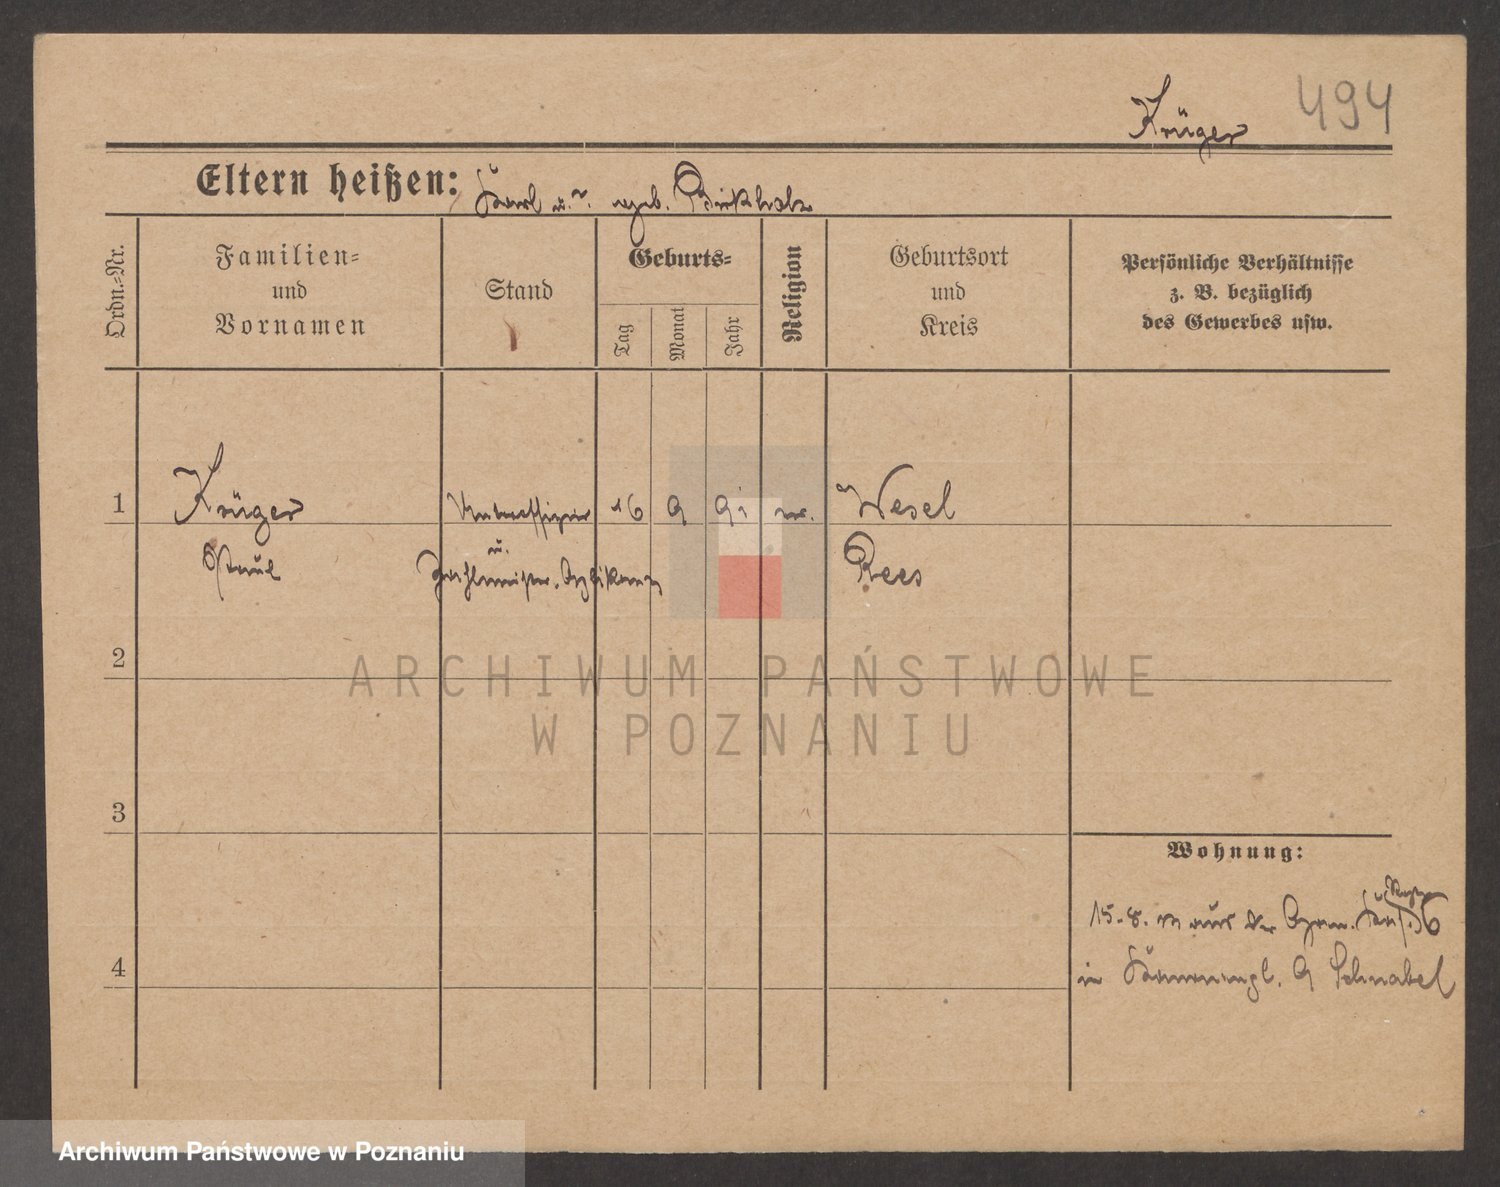 Krüger 494
Eltern heißen: Karl u. geb. Birkholz
Ordn.=Nr.
Familien=
und
Vornamen
Stand
Geburts=
Tag
Monat
Jahr
Religion
Geburtsort
und
Kreis
Persönliche Verhältnisse
z. B. bezüglich
des Gewerbes usw.
1 Krüger Unteroffizier 16 9 91 ev. Wesel
Paul u. Zahlmeister. Rees
2
3
4
Wohnung:
15.8. aus der
in 9 Schnabel
ARCHIWUM PAŃSTWOWE
W POZNANIU
Archiwum Państwowe w Poznaniu